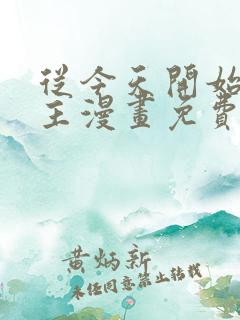 從今天開始
王漫畫免費
黄炳新
未经同意禁止转载